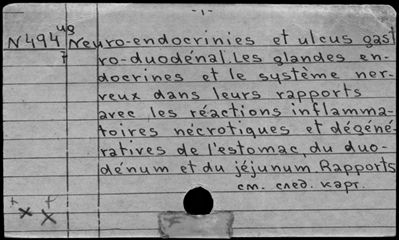 -1-
N494 ug Neuro-endocrinies et ulcus gast
7 ro-duodénal. Les glandes en-
docrines et le système ner-
veux dans leurs rapports
avec les réactions inflamma-
toires nécrotiques et dégéné-
ratives de l'estomac, du duo-
dénum et du jéjunum. Rapports
см. след. карт.